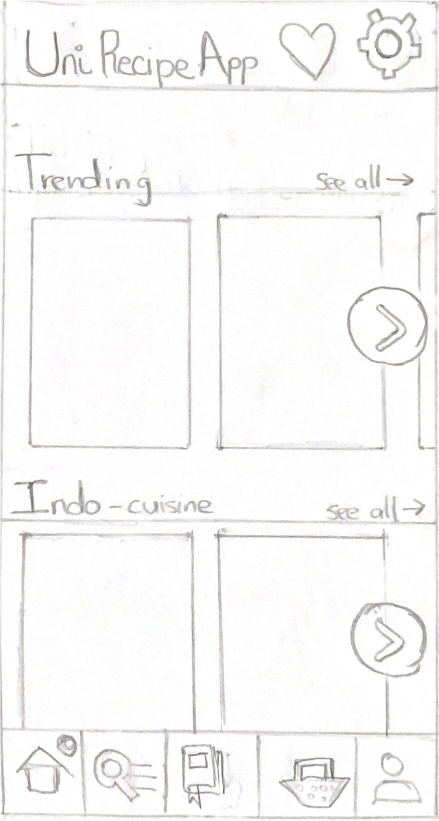 Uni Recipe App
Trending see all →
Indo-cuisine see all →